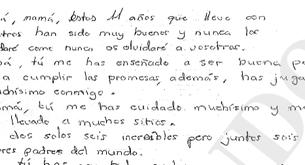 á, mamá, Estos 11 años que llevo con
otros han sido muy buenos y nunca los
daré come nunca os olvidaré a vosotros.
á, tú me has enseñado a ser buena pe
a cumplir las promesas, además, has jugad
uchísimo conmigo.
má, tú me has cuidado muchísimo y me
llevado a muchos sitios.
dos solos seis increíbles pero juntos sois
res padres del mundo.